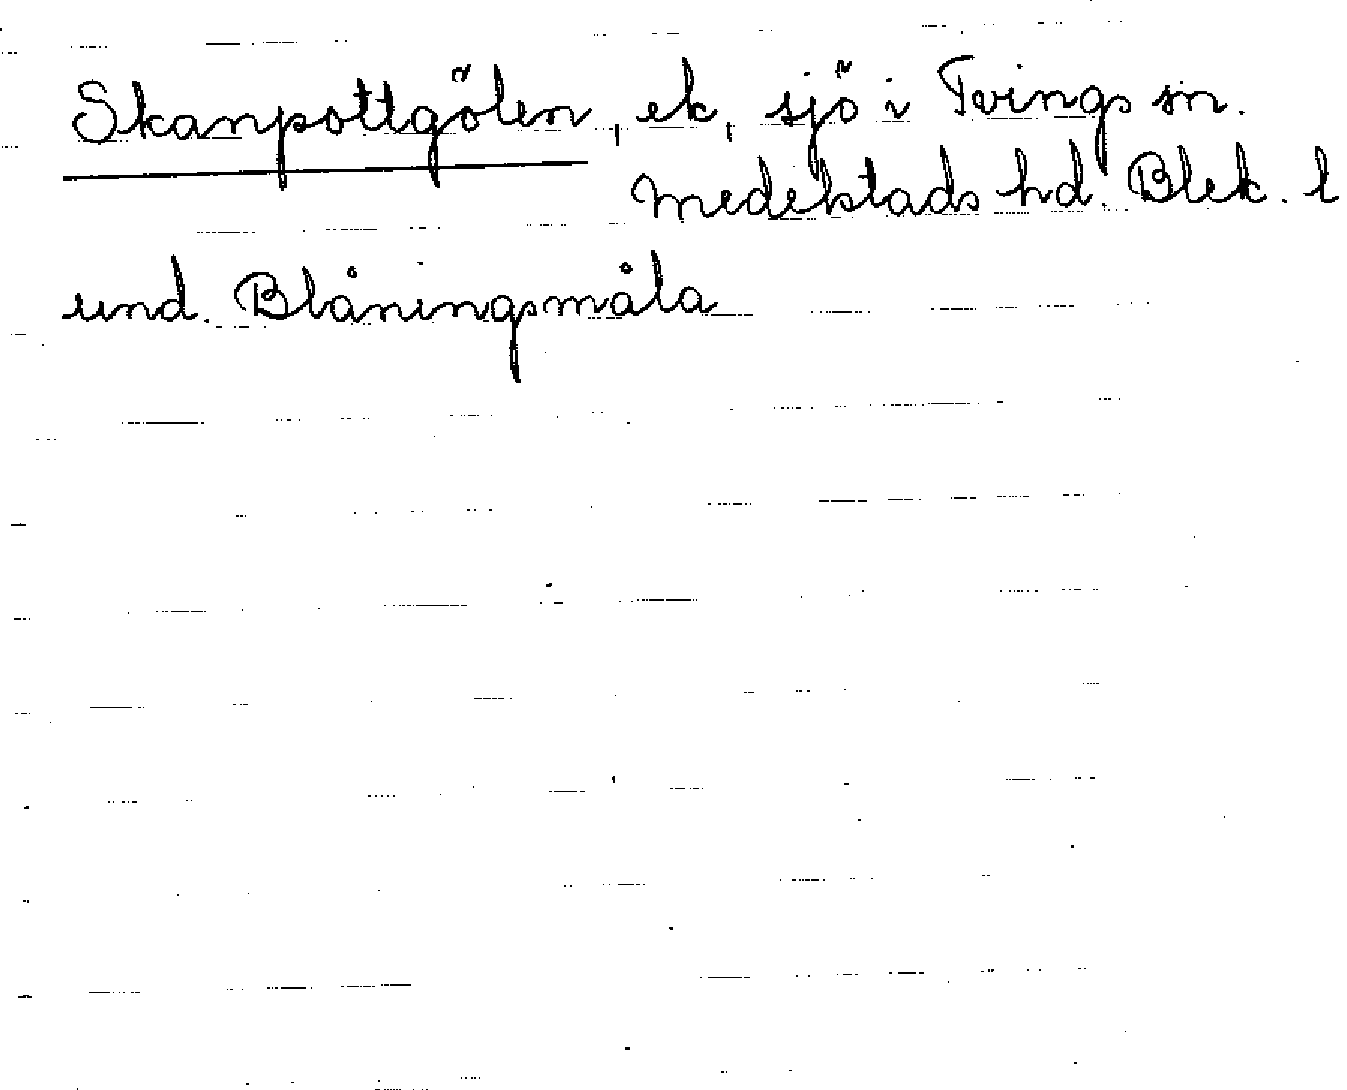 Skanpottgölen, ek, sjö i Tvings sn.
Medelstads hd. Blek. l
und. Blåningsmåla